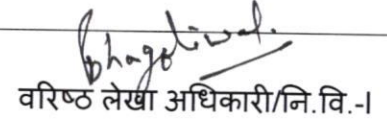 वरिष्ठ लेखा अधिकारी/नि.वि.-I